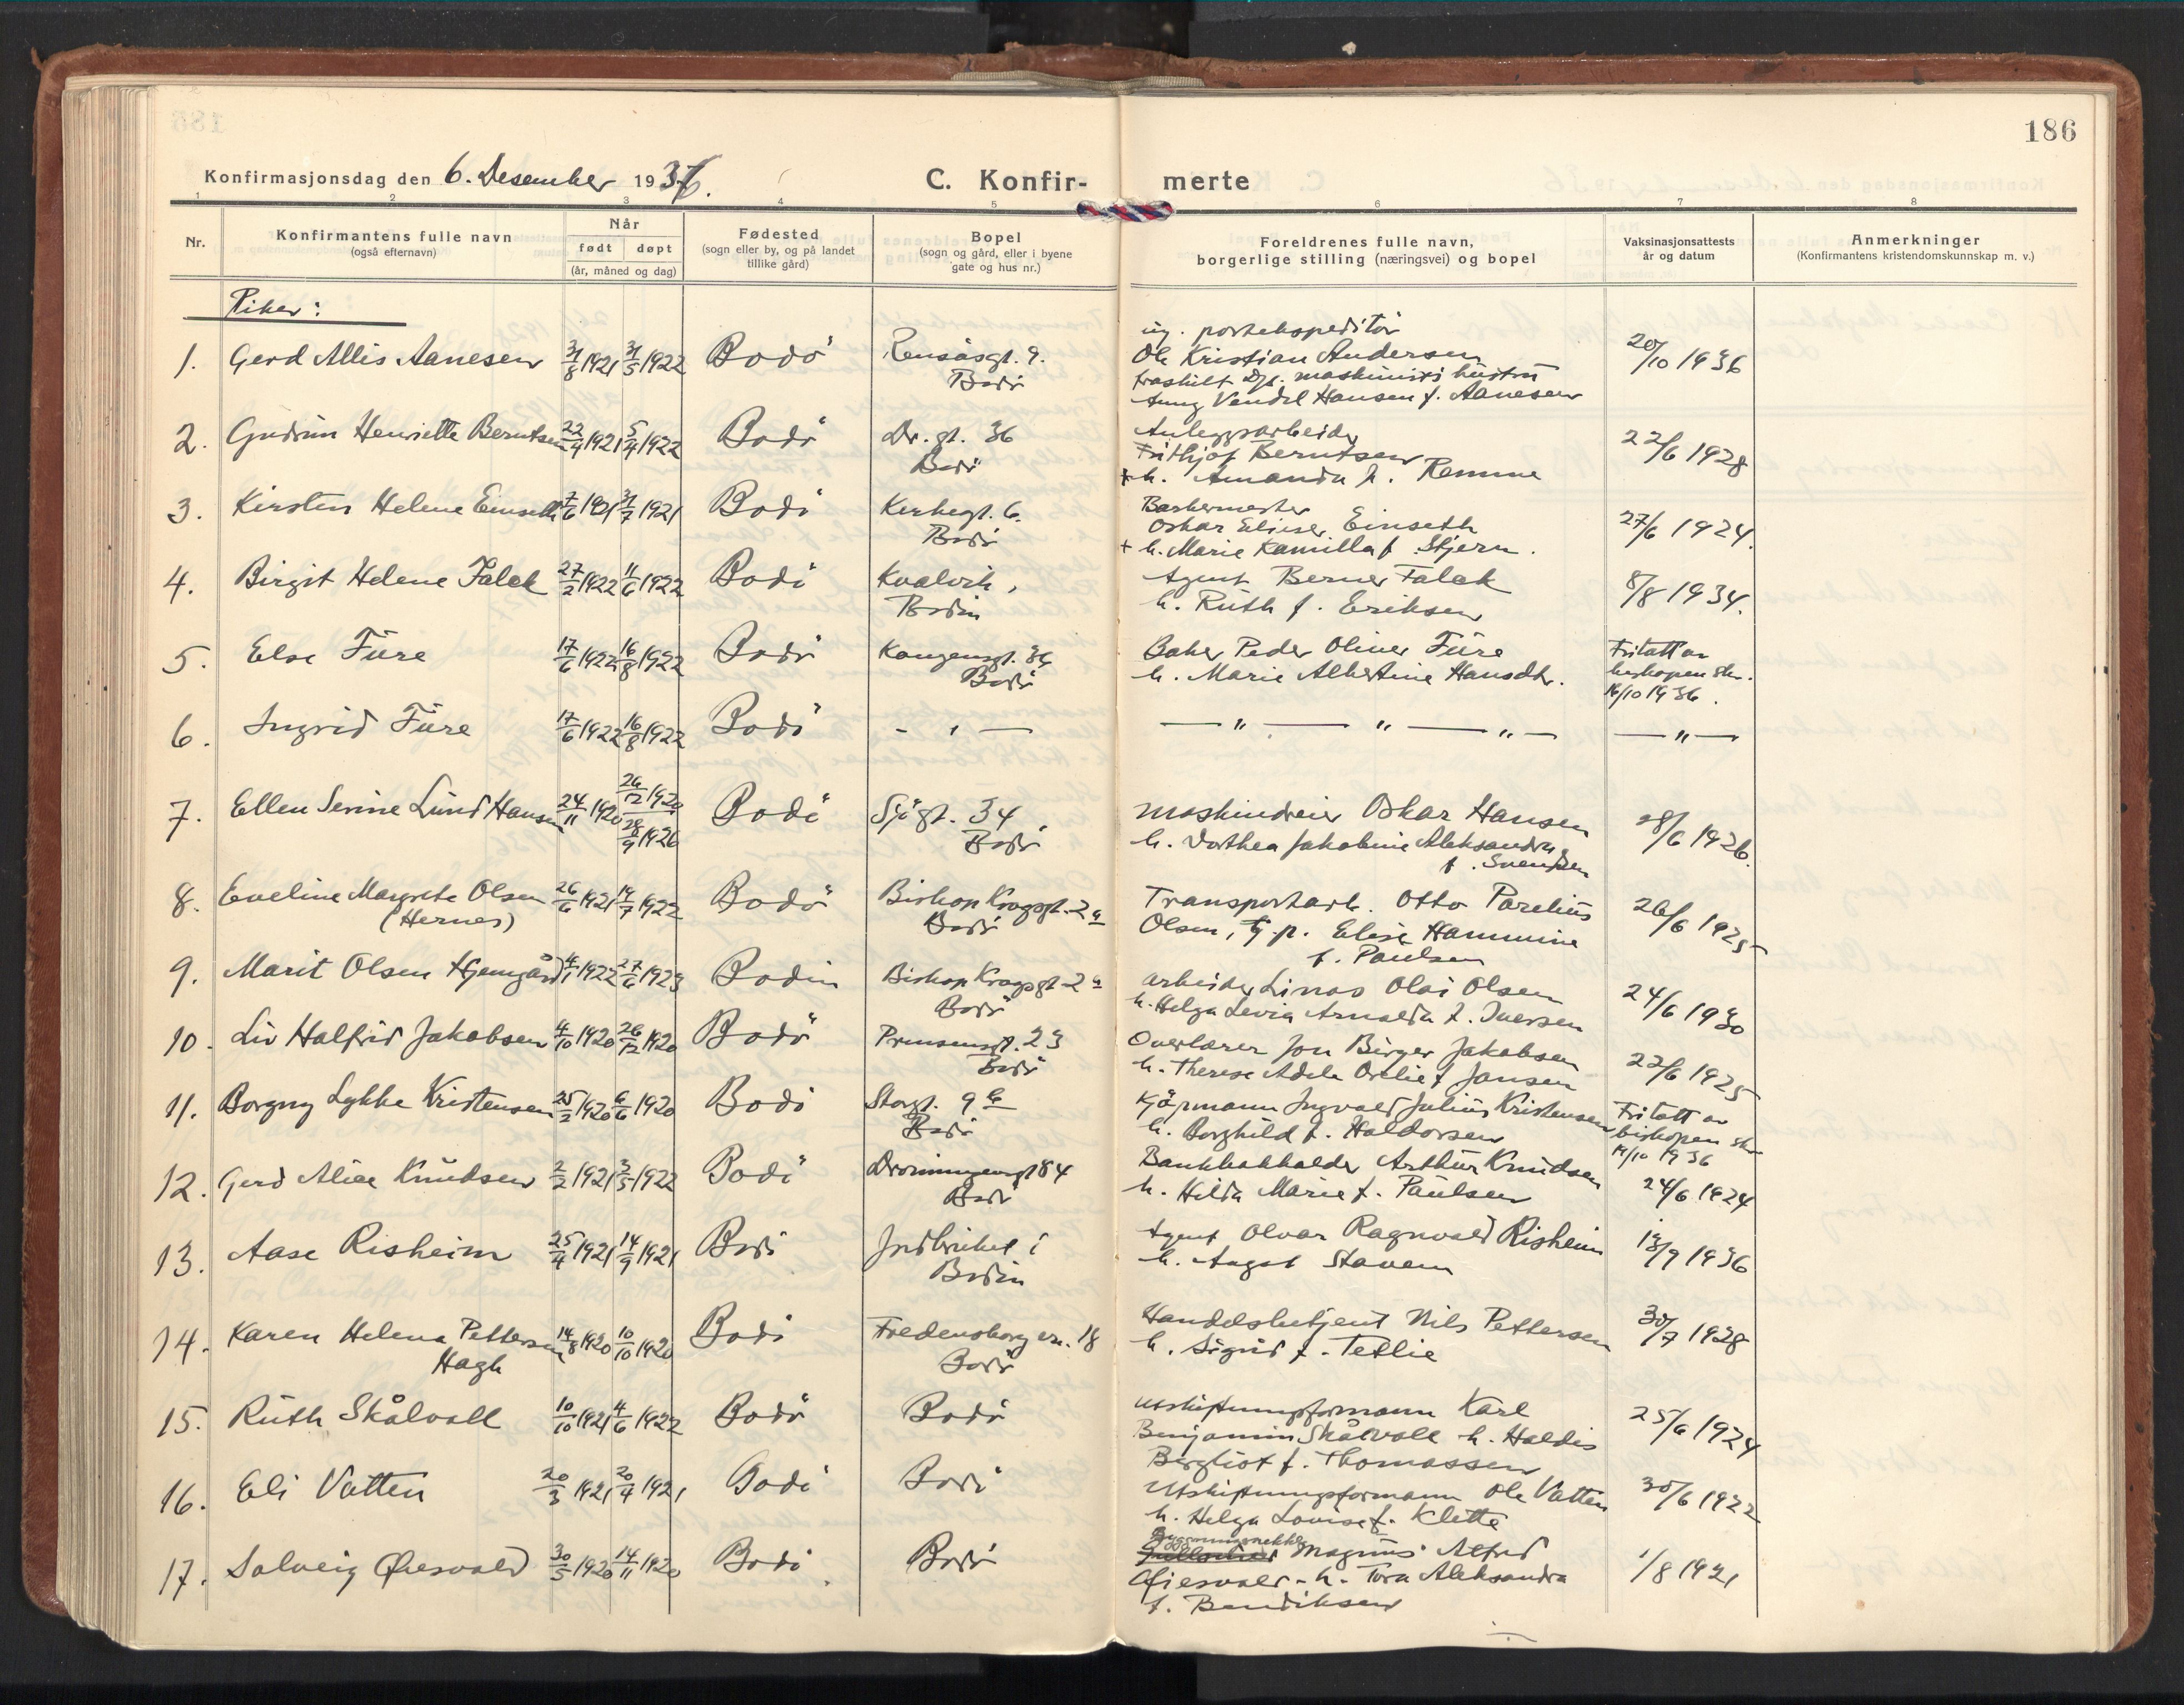 186
Konfirmasjonsdag den 6. Desember 1936.
C. Konfir- merte
1 2 3 4 5 6 7 8
Nr.
Konfirmantens fulle navn
(også efternavn)
Når
født døpt
(år, måned og dag)
Fødested
(sogn eller by, og på landet
tillike gård)
Bopel
(sogn og gård, eller i byene
gate og hus nr.)
Foreldrenes fulle navn,
borgerlige stilling (næringsvei) og bopel
Vaksinasjonsattests
år og datum
Anmerkninger
(Konfirmantens kristendomskunnskap m. v.)
Piker:
1. Gerd Allis Aanesen 31/8 1921 31/5 1922 Bodö Rensåsgt. 9. Bodö
ug. postekspeditör
Ole Kristian Andersen
fraskilt maskinists hustru
Vendel Hansen f. Aanesen
20/10 1936
2. Gudrun Henriette Berntsen 22/9 1921 5/4 1922 Bodö Dr. gt. 36 Bodö
Anleggsarbeider
Frithjof Berntsen
+ h. Amanda f. Remme
22/6 1928
3. Kirsten Helene Einseth 7/6 1921 31/7 1921 Bodö Kirkegt. 6. Bodö
Barbermester
Oskar Elieser Einseth
+ h. Marie Kamilla f. Stjern.
27/6 1924.
4. Birgit Helene Falck 27/2 1922 11/6 1922 Bodö Kvalvik, Bodin
Agent Berner Falck
h. Ruth f. Eriksen
8/8 1934.
5. Else Füre 17/6 1922 16/8 1922 Bodö Kongensgt. 36 Bodö
Baker Peder Oliver Füre
h. Marie Albertine Hansdtr.
Fritatt av
biskopen skr.
16/10 1936.
6. Ingrid Füre 17/6 1922 16/8 1922 Bodö - " -
— " — " — " —
— " —
7. Ellen Serine Lund Hansen 24/11 1920 26/12 1920 28/9 1926 Bodö Sjögt. 34 Bodö
Maskindreier Oskar Hansen
h. Dorthea Jakobine Aleksandra
f. Svendsen
28/6 1926.
8. Eveline Margrete Olsen 26/6 1921 14/7 1922 Bodö Biskop Kragsgt. 2a
(Hernes) Bodö
Transportarb. Otto Parelius
Olsen, Elise Hammine
f. Paulsen
26/6 1925
9. Marit Olsen Hjemgård 4/1 1922 27/6 1923 Bodin Biskop Kragsgt 2a Bodö
Arbeider Linas Olai Olsen
h. Helga Levia Arnolda f. Iversen
24/6 1930
10. Liv Halfrid Jakobsen 4/10 1920 26/12 1920 Bodö Prinsensgt. 23 Bodö
Overlærer Jon Birger Jakobsen
h. Therese Adele Orelie f. Jansen
22/6 1925
11. Borgny Lykke Kristensen 25/2 1920 6/6 1920 Bodö Storgt. 9 b Bodö
Kjöpmann Ingvald Julius Kristensen
h. Borghild f. Haldorsen
Fritatt av
biskopen skr
19/10 1936
12. Gerd Alice Knudsen 2/2 1921 3/5 1922 Bodö Dronningensgt 84 Bodö
Bankbokholder Arthur Knudsen
h. Hilda Marie f. Paulsen
24/6 1924
13. Aase Risheim 25/4 1921 14/9 1921 Bodö Jordbruket i Bodin
Agent Olvar Ragnvald Risheim
h. Aagot Stavem
18/9 1936
14. Karen Helena Pettersen 14/8 1920 10/10 1920 Bodö Fredensborg vn. 18
Hagh Bodö
Handelsbetjent Nils Pettersen
h. Sigrid f. Tetlie
30/7 1928
15. Ruth Skålvoll 10/10 1921 4/6 1922 Bodö Bodö
Utskiftningsformann Karl
Benjamin Skålvoll h. Haldis
Bergliot f. Thomassen
25/6 1924
16. Eli Vatten 20/3 1921 20/4 1921 Bodö Bodö
Utskiftningsformann Ole Vatten
h. Helga Lovise f. Klette
30/6 1922
17. Solveig Øiesvold 30/5 1920 14/11 1920 Bodö Bodö
Bygningssnekker
Magnus Alfred
Øiesvold - h. Tora Aleksandra
f. Bendiksen
1/8 1921